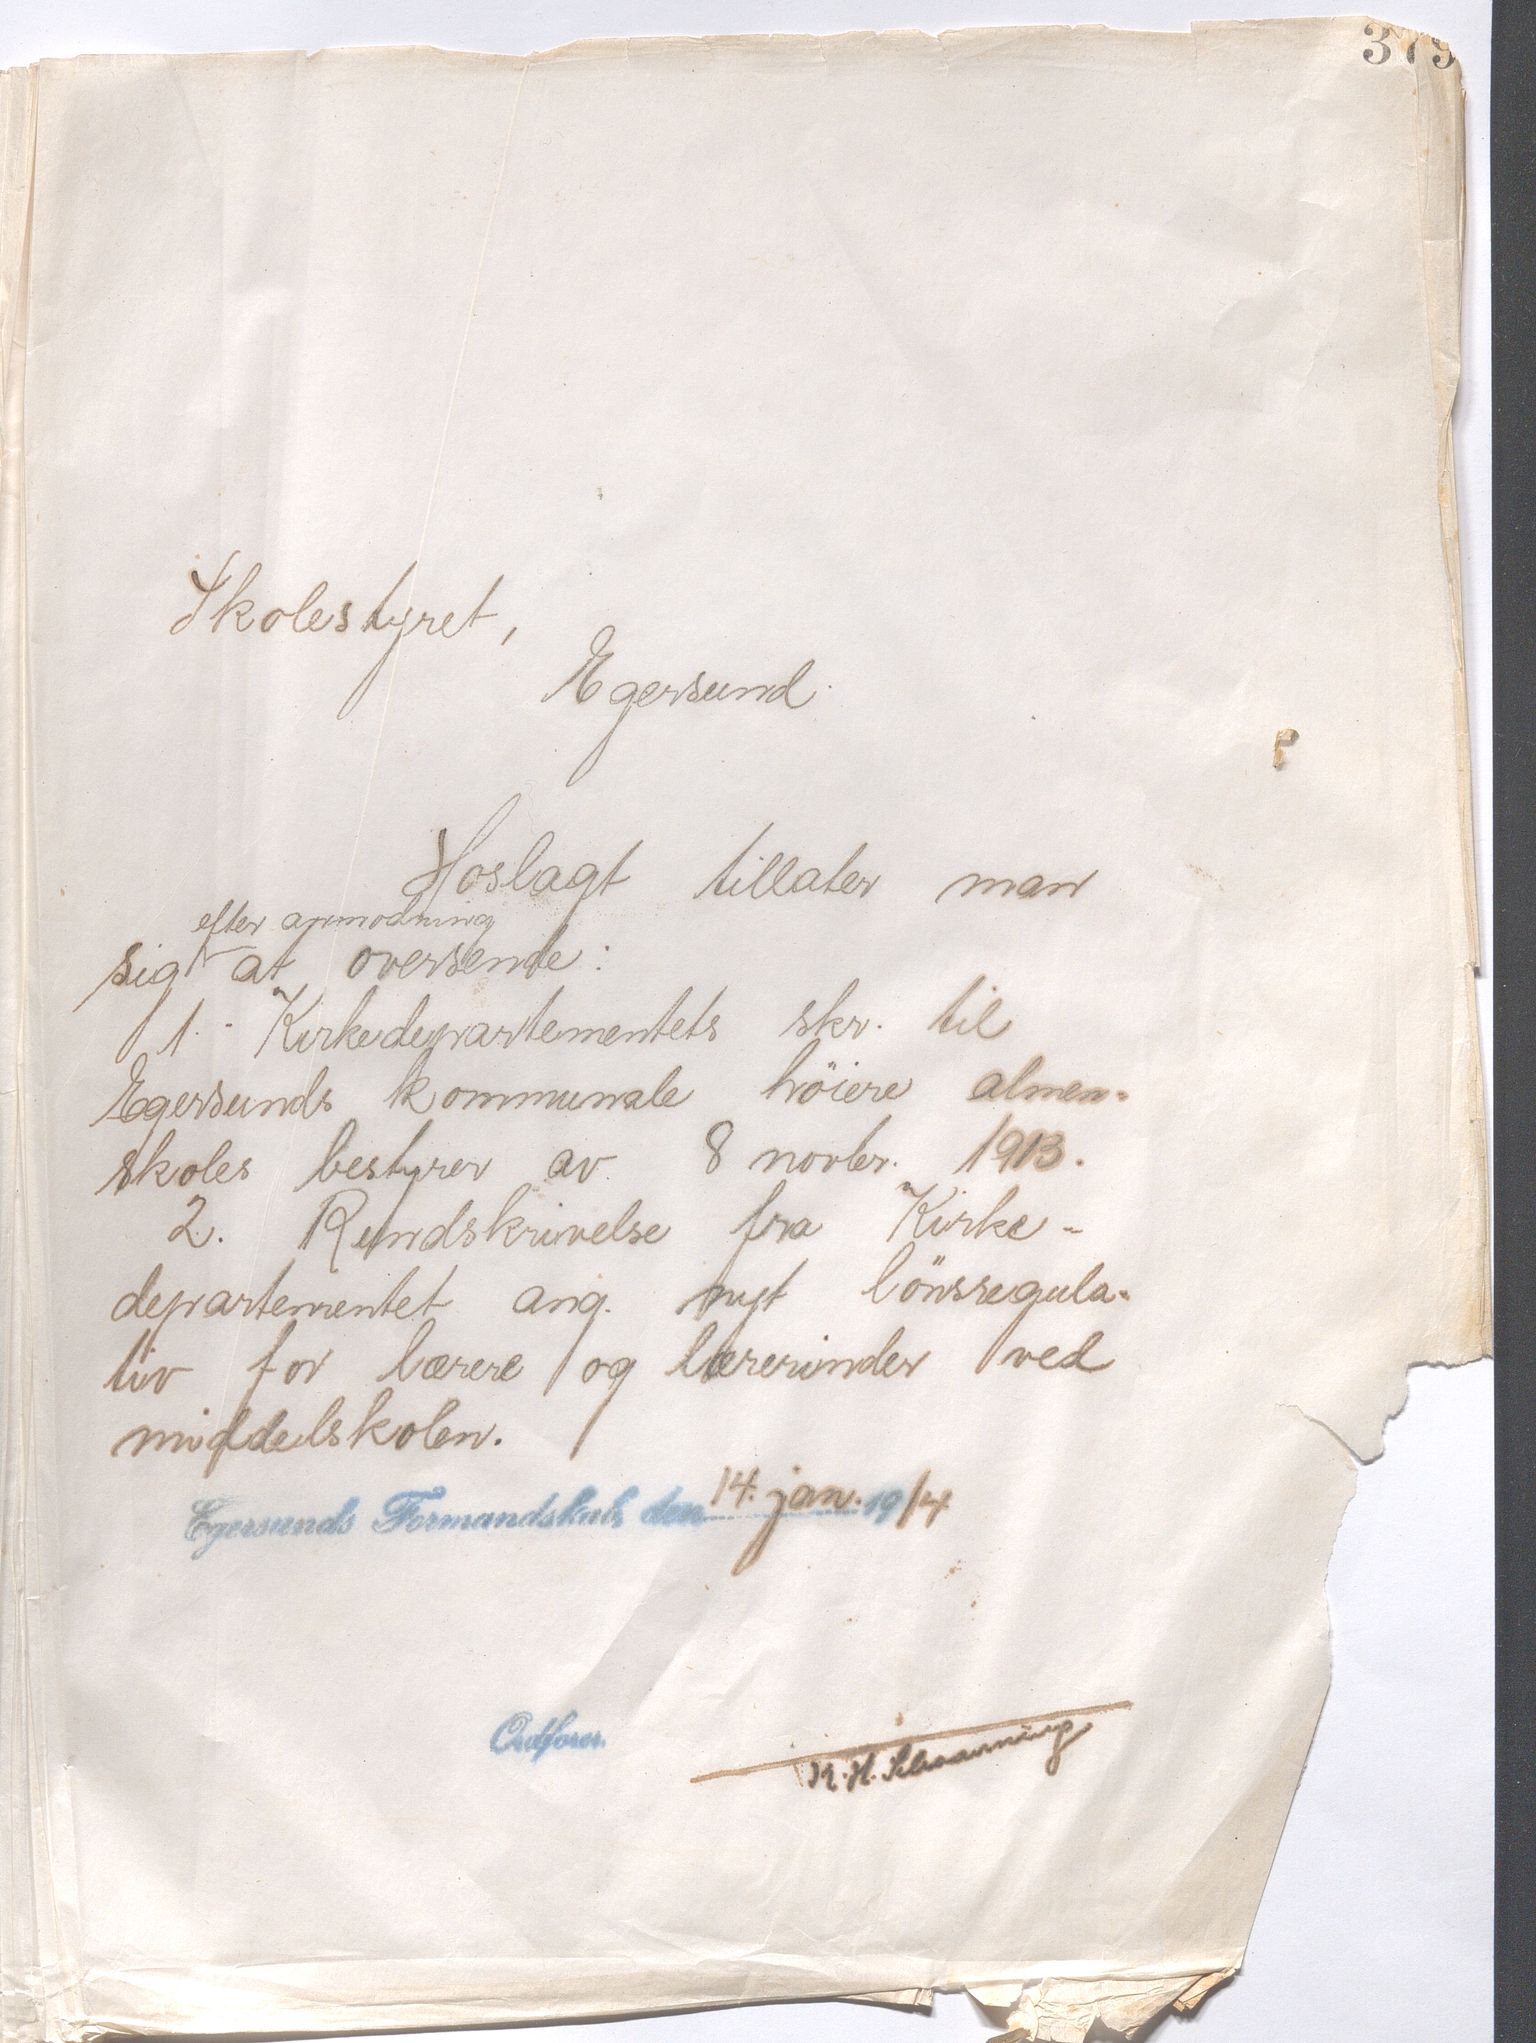 379
Skolestyret,
Egersund.
Hoslagt tillater man
efter anmodning
sig at oversende:
1. Kirkedepartementets skr. til
Egersunds kommunale höiere almen-
skoles bestyrer av 8 novbr. 1913.
2. Rundskrivelse fra Kirke-
departementet ang. nyt lönsregula-
tiv for lærere og lærerinder ved
middelskolen.
Egersunds Formandskab, den 14. jan. 1914
Ordfører.